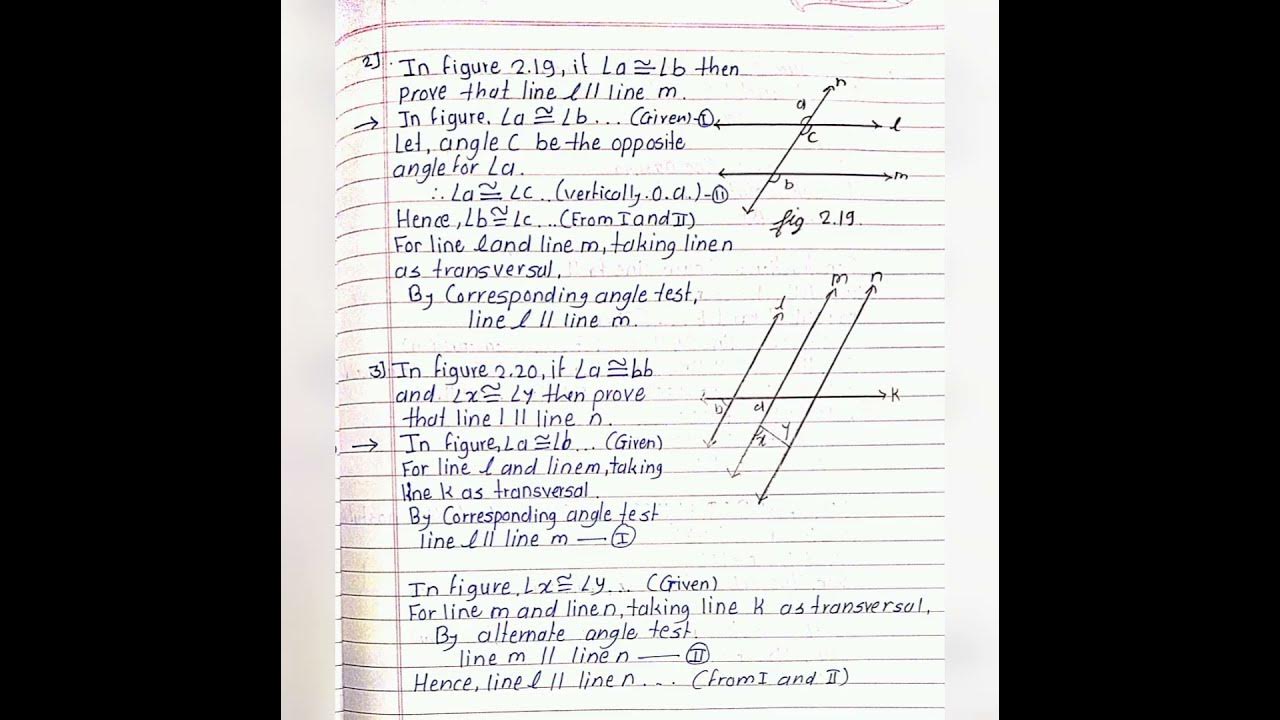 2] In figure 2.19, if ∠a ≅ ∠b then
prove that line l || line m.
→ In figure, ∠a ≅ ∠b ... (Given)-Ⓘ
Let, angle C be the opposite
angle for ∠a.
∴ ∠a ≅ ∠c .. (vertically.o.a.)-Ⓘⓘ
Hence, ∠b ≅ ∠c ... (From I and II)
For line l and line m, taking line n
as transversal,
By Corresponding angle test,
line l || line m.
n
a
l
c
m
b
fig 2.19.
3] In figure 2.20, if ∠a ≅ bb
and ∠x ≅ ∠y then prove
that line l || line n.
→ In figure, ∠a ≅ ∠b ... (Given)
For line l and line m, taking
line k as transversal.
By Corresponding angle test
line l || line m — Ⓘ
l
m
n
k
b
a
x
y
In figure, ∠x ≅ ∠y ... (Given)
For line m and line n, taking line k as transversal,
By alternate angle test.
line m || line n — Ⅱ
Hence, line l || line n ... (from I and II)